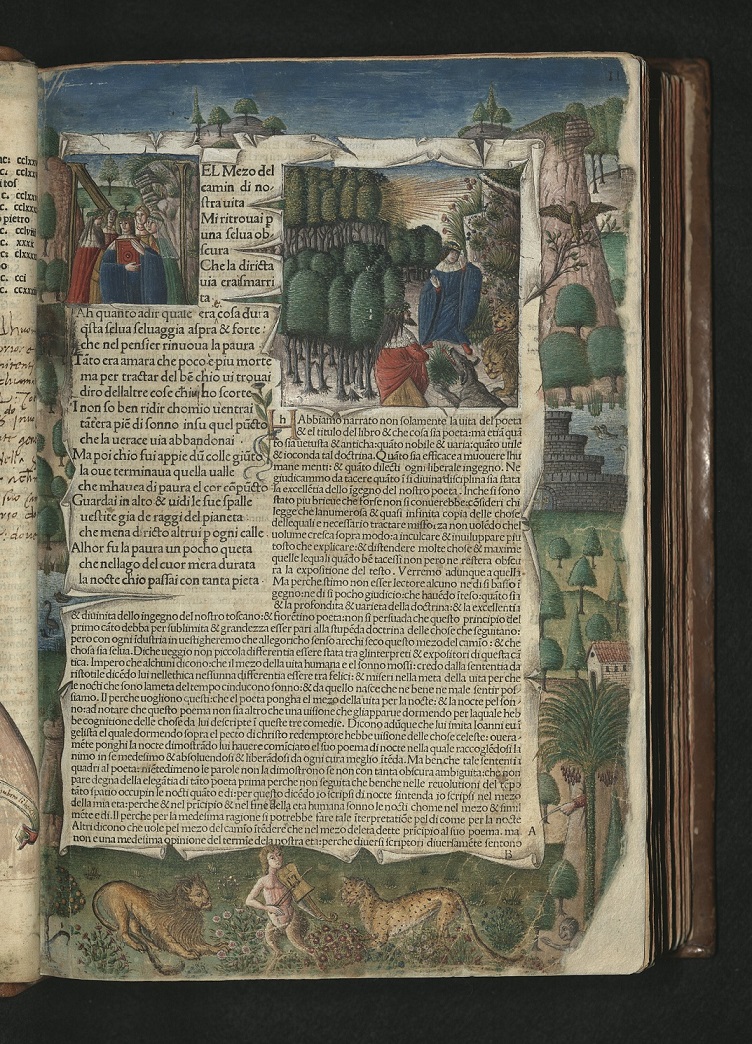 c. cclxx
itoſ
c. cclxx
c. cclxx
pietro
c. cclvi
c. xxxx
c: clxxx
c. cci
c. ccxxi
EL Mezo del
camin di no-
ſtra uita
Mi ritrouai p
una ſelua ob-
ſcura
Che la diricta
uia era ſmarri
ta.
Ah quanto adir quale era coſa dura
eſta ſelua ſeluaggia aſpra & forte:
che nel penſier rinuoua la paura
Tāto era amara che poco e piu morte
ma per tractar del bē chio ui trouai
diro dellaltre coſe chi ho ſcorte
I non ſo ben ridir chomio uentrai
tātera piē di ſonno inſu quel pūcto
che la uerace uia abbandonai
Ma poi chio fui appie dū colle giūto
la oue terminaua quella ualle
che mhauea di paura el cor cōpūcto
Guardai in alto & uidi le ſue ſpalle
ueſtite gia de raggi del pianeta
che mena diricto altrui p ogni calle
Alhor fu la paura un pocho queta
che nellago del cuor mera durata
la nocte chio paſſai con tanta pieta
h Abbiamo narrato non ſolamente la uita del poeta
& el titulo del libro & che coſa ſia poeta: ma etiā quā
to ſia uetuſta & anticha: quāto nobile & uaria: quāto utile
& ioconda tal doctrina. Quāto ſia efficace a muouere lhu
mane menti: & quāto dilecti ogni liberale ingegno. Ne
giudicammo da tacere quāto ī ſi diuina diſciplina ſia ſtata
la excellētia dello īgegno del noſtro poeta. Inche ſi ſono
ſtato piu brieue che forſe non ſi conuerrebbe: cōſideri chi
legge che lanumeroſa & quaſi infinita copia delle choſe
delle quali e neceſſario tractare miſforza non uolēdo chel
uolume creſca ſopra modo: a inculcare & inuiluppare piu
toſto che explicare: & diſtendere molte choſe & maxime
quelle lequali quādo bē taceſſi non pero ne reſtera obſcu
ra la expoſitione del teſto. Verremo adunque a quella.
Ma perche ſtimo non eſſer lectore alcuno ne di ſi baſſo ī
gegno: ne di ſi pocho giudicio: che hauēdo īteſo: quāto ſi ī
& la profondita & uarieta della doctrina: & la excellentia
& diuinita dello ingegno del noſtro toſcano: & fiorētino poeta: non ſi perſuada che queſto principio del
primo cāto debba per ſublimita & grandezza eſſer pari alla ſtupēda doctrina delle choſe che ſeguitano:
pero con ogni īduſtria inueſtigheremo che allegoricho ſenſo arechi ſeco queſto mezo del camīo: & che
choſa ſia ſelua. Diche ueggio non piccola differentia eſſere ſtata tra glinterpreti & expoſitori di queſta cā
tica. Impero che alchuni dicono: che il mezo della uita humana e el ſonno moſſi: credo dalla ſententia da
riſtotile dicēdo lui nellethica neſſuna differentia eſſere tra felici: & miſeri nella meta della uita per che
le nocti che ſono lameta del tempo cinducono ſonno: & da quello naſce che ne bene ne male ſentir poſ
ſiamo. Il perche uogliono queſti: che el poeta pongha el mezo della uita per la nocte: & la nocte pel ſon
no: ad notare che queſto poema non ſia altro che una uiſione che gliapparue dormendo per laquale heb
be cognitione delle choſe da lui deſcripte ī queſte tre comedie. Dicono adūque che lui imita Ioanni eua
geliſta el quale dormendo ſopra el pecto di chriſto redemptore hebbe uiſione delle choſe celeſte: ouera-
mēte ponghi la nocte dimoſtrādo lui hauere comīciato el ſuo poema di nocte nella quale raccoglēdoſi la
nimo in ſe medeſimo & abſoluendoſi & liberādoſi da ogni cura meglio ītēda. Ma benche tale ſententi ī
quadri al poeta: niētedimeno le parole non la dimoſtrono ſe non con tanta obſcura ambiguita: che non
pare degna della elegātia di tāto poeta prima perche non ſeguita che benche nelle reuolutioni del tēpo
tāto ſpatio occupin le nocti quāto e di: per queſto dicēdo io ſcripſi di nocte ſintenda io ſcripſi nel mezo
della mia eta: perche & nel pricipio & nel fine della eta humana ſonno le nocti chome nel mezo & ſimil
mēte e di. Il perche per la medeſima ragione ſi potrebbe fare tale īterpretatiōe pel di come per la nocte
Altri dicono che uole pel mezo del camīo ītēdere che nel mezo deleta dette pricipio al ſuo poema. ma
non e una medeſima opinione del termīe dela noſtra eta: perche diuerſi ſcriptori diuerſamēte ſentono
A
B